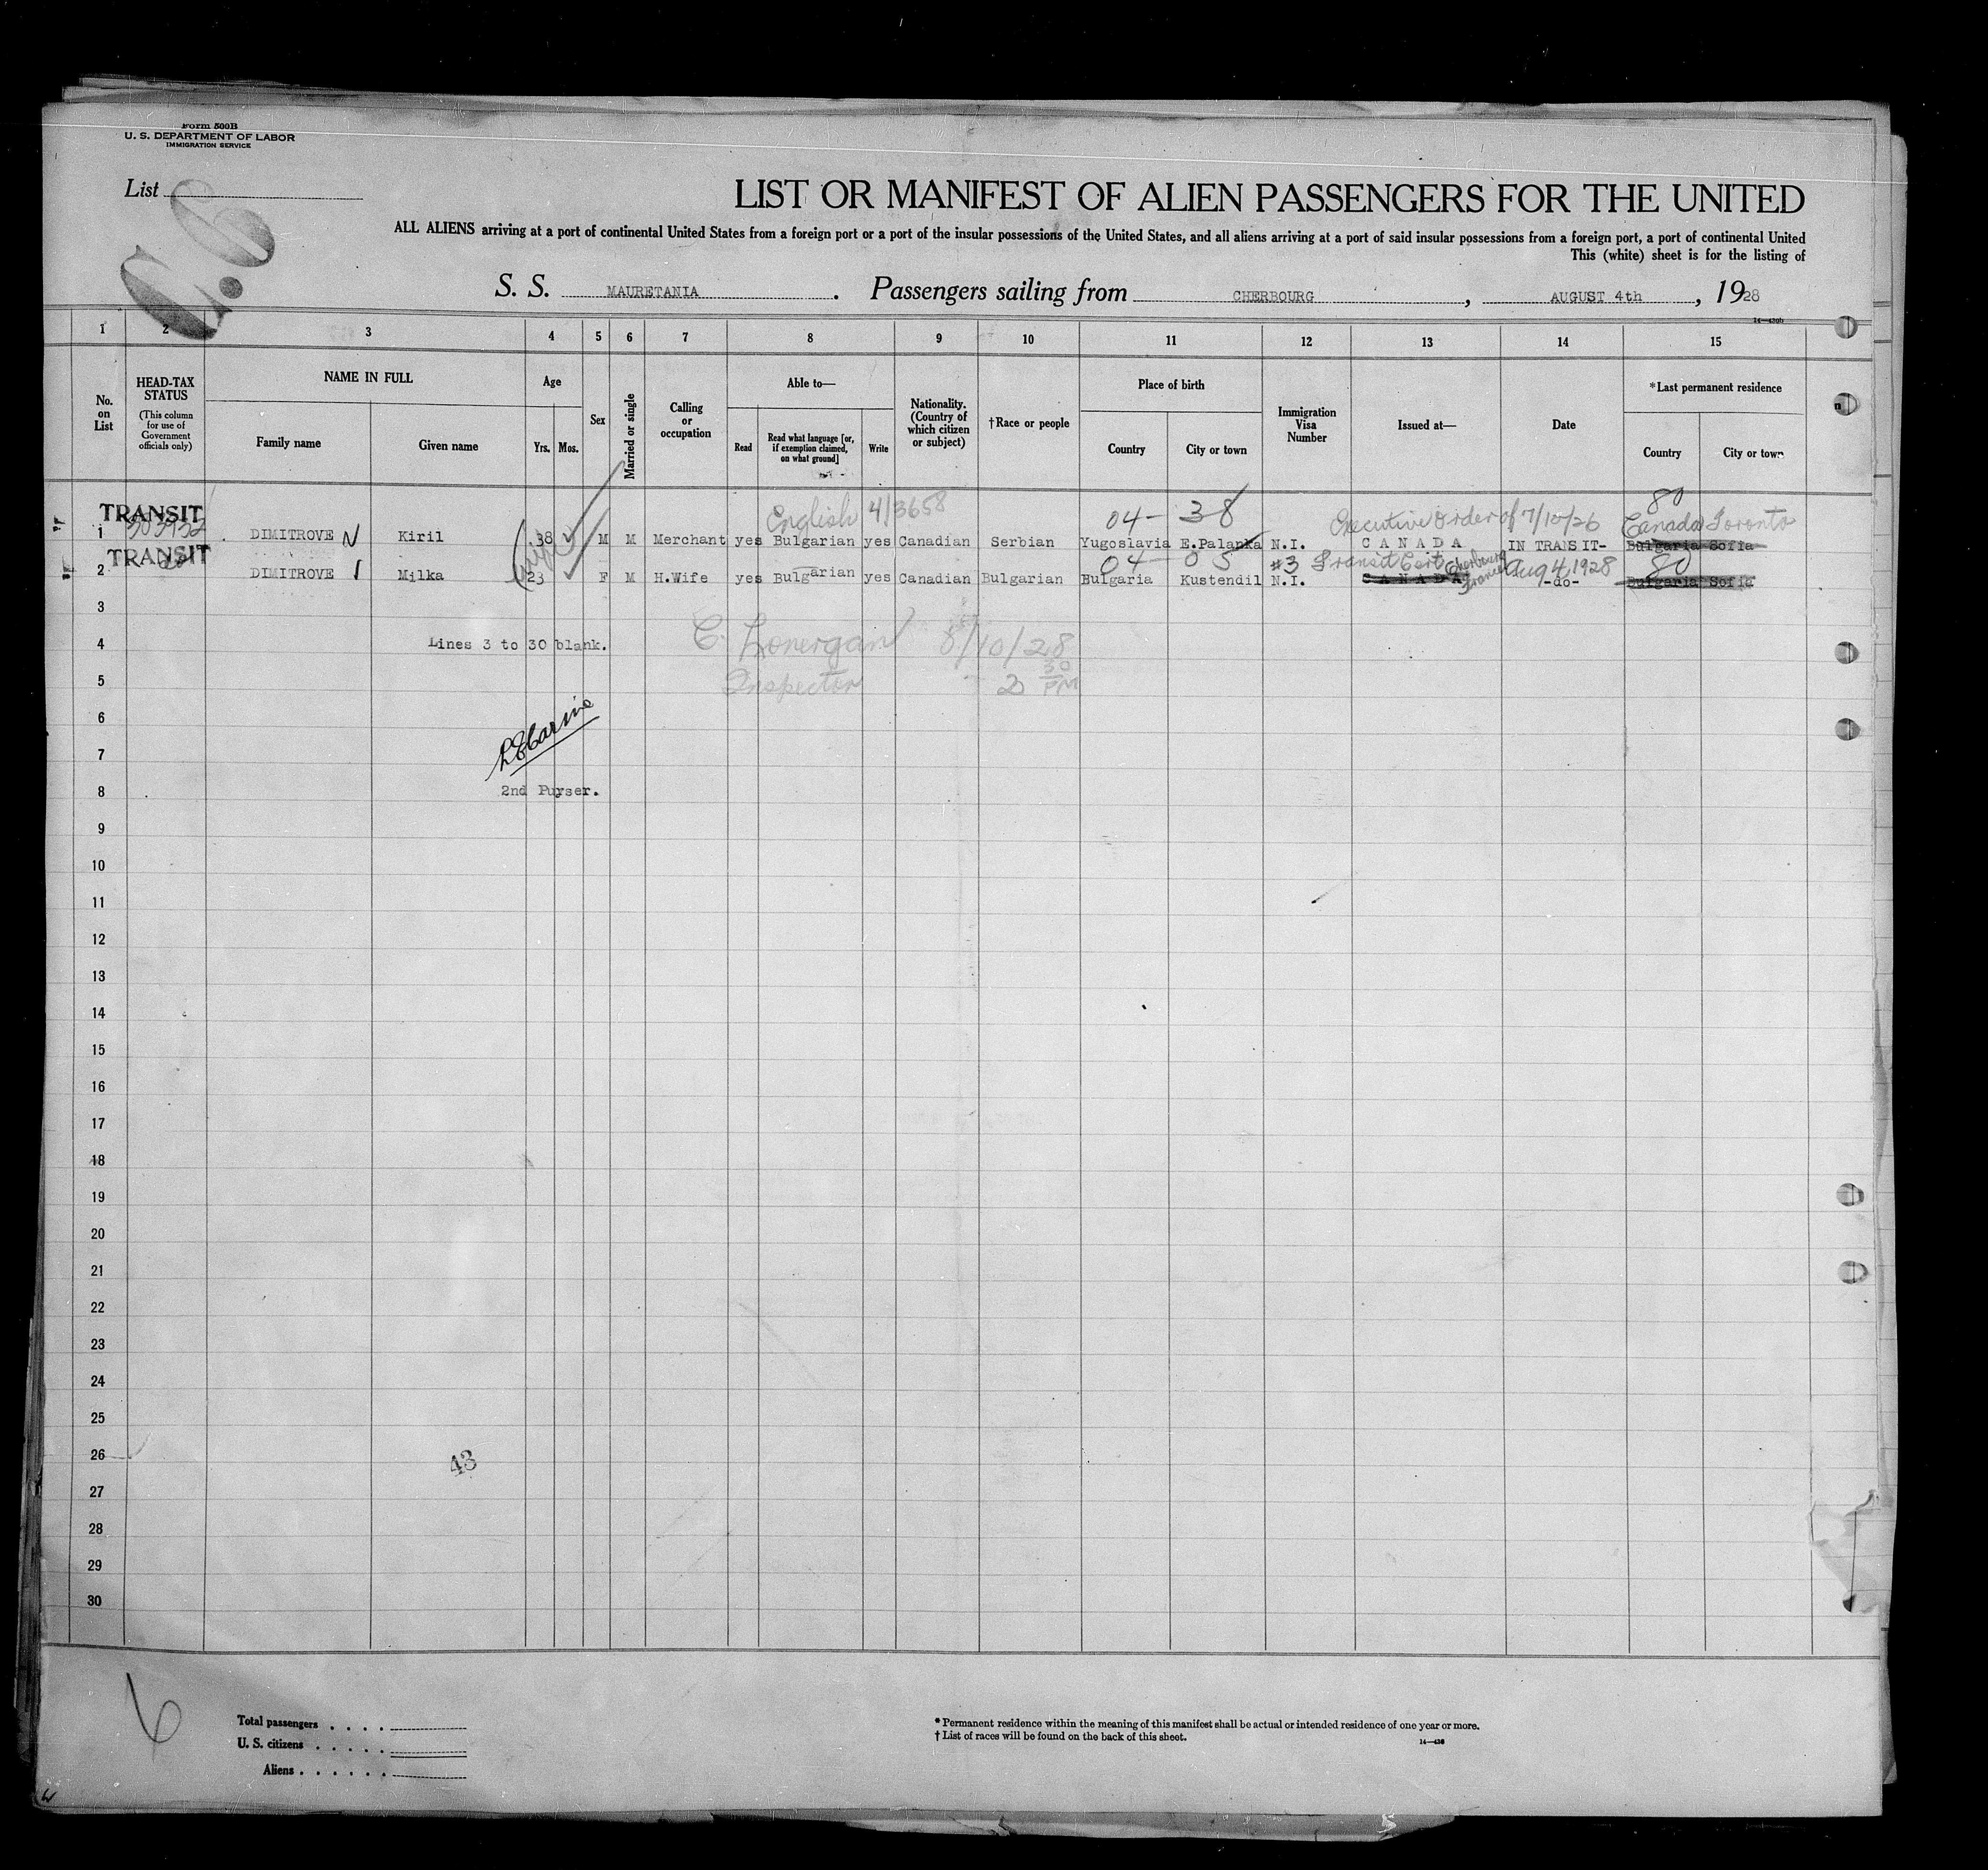 Form 500B
U. S. DEPARTMENT OF LABOR
IMMIGRATION SERVICE
List
LIST OR MANIFEST OF ALIEN PASSENGERS FOR THE UNITED
ALL ALIENS arriving at a port of continental United States from a foreign port or a port of the insular possessions of the United States, and all aliens arriving at a port of said insular possessions from a foreign port, a port of continental United
This (white) sheet is for the listing of
S. S. MAURETANIA. Passengers sailing from CHERBOURG, AUGUST 4th, 1928
1 2 3 4 5 6 7 8 9 10 11 12 13 14 15
No. on List
HEAD-TAX STATUS (This column for use of Government officials only)
NAME IN FULL
Family name Given name
Age
Yrs. Mos.
Sex
Married or single
Calling or occupation
Able to—
Read Read what language [or, if exemption claimed, on what ground] Write
Nationality. (Country of which citizen or subject)
†Race or people
Place of birth
Country City or town
Immigration Visa Number
Issued at—
Date
*Last permanent residence
Country City or town
TRANSIT English 4/3658 04- 38 Executive order of 7/10/26 80 Canada Toronto
1 DIMITROVE N Kiril 38 M M Merchant yes Bulgarian yes Canadian Serbian Yugoslavia E.Palanka N.I. CANADA IN TRANSIT- Bulgaria Sofia
TRANSIT 04 - 05 #3 Transit Cert Cherbourg France Aug 4, 1928 80
2 DIMITROVE Milka 23 F M H.Wife yes Bulgarian yes Canadian Bulgarian Bulgaria Kustendil N.I. CANADA -do- Bulgaria Sofia
3
4 Lines 3 to 30 blank. C. Lonergan 8/10/28
5 Inspector 2 30 PM
6
7
8 2nd Purser.
9
10
11
12
13
14
15
16
17
18
19
20
21
22
23
24
25
26 43
27
28
29
30
6
Total passengers . . . .
U. S. citizens . . . . .
Aliens . . . . . .
* Permanent residence within the meaning of this manifest shall be actual or intended residence of one year or more.
† List of races will be found on the back of this sheet.
14—430